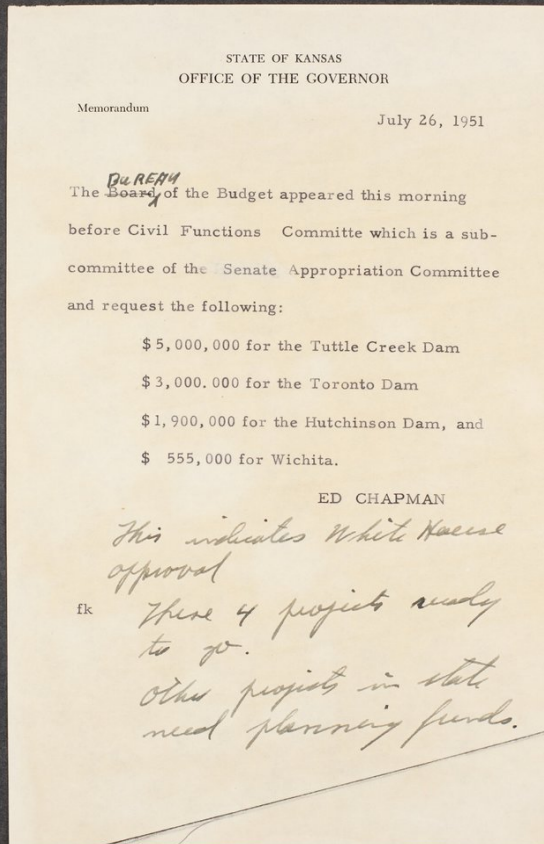 STATE OF KANSAS
OFFICE OF THE GOVERNOR
Memorandum
July 26, 1951
BUREAU
The Board of the Budget appeared this morning
before Civil Functions Committe which is a sub-
committee of the Senate Appropriation Committee
and request the following:
$5,000,000 for the Tuttle Creek Dam
$3,000.000 for the Toronto Dam
$1,900,000 for the Hutchinson Dam, and
$ 555,000 for Wichita.
ED CHAPMAN
This indicates White House
approval
fk
These 4 projects ready
to go.
Other projects in state
need planning funds.